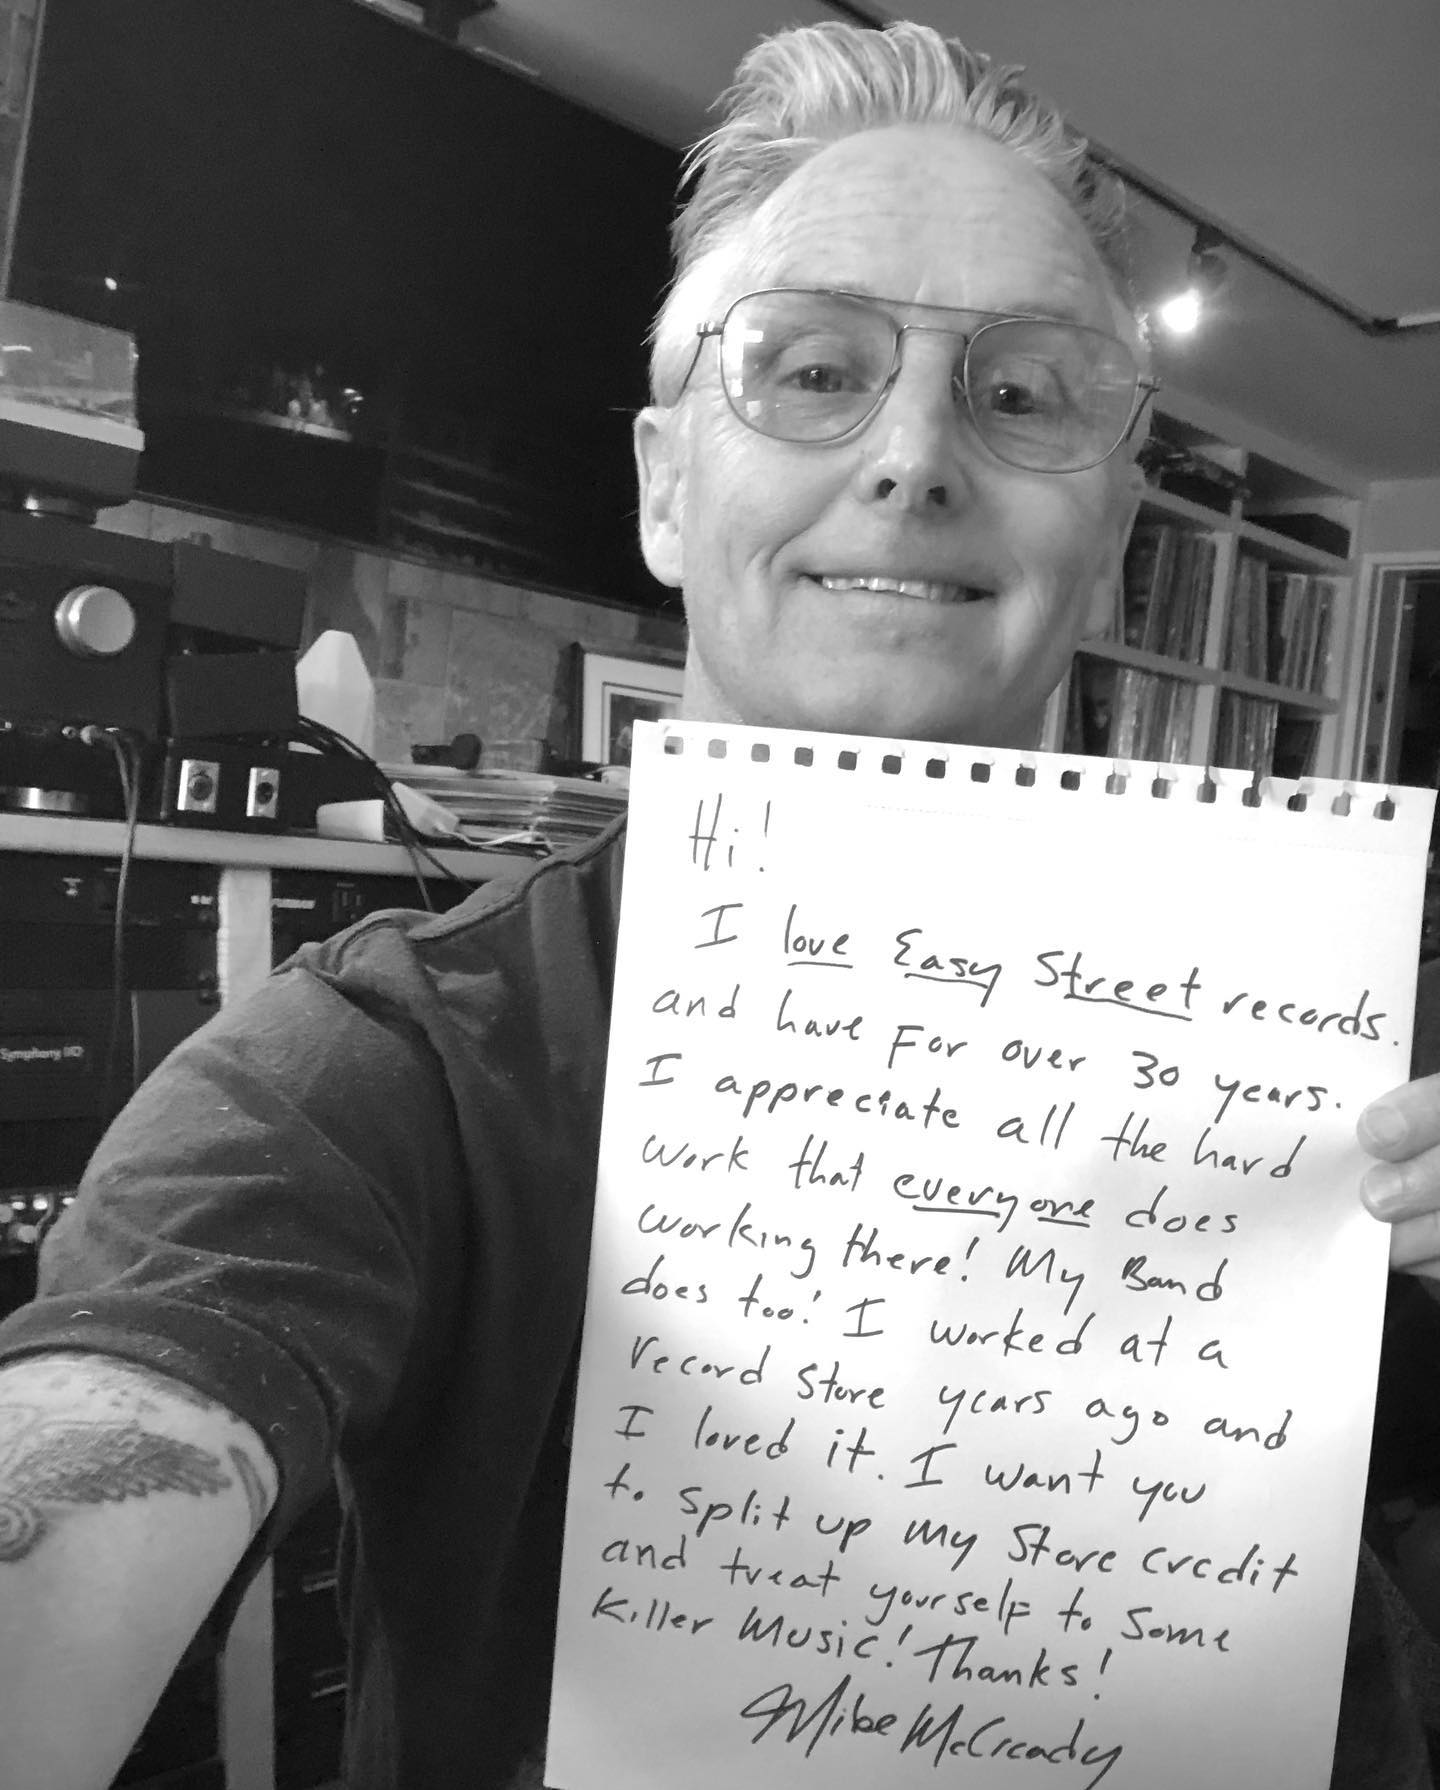 Hi!
I love Easy Street records.
and have For over 30 years.
I appreciate all the hard
work that everyone does
working there! My Band
does too! I worked at a
record store years ago and
I loved it. I want you
to split up my store credit
and treat yourself to some
Killer Music! Thanks!
Mike McCready
Symphony I/O